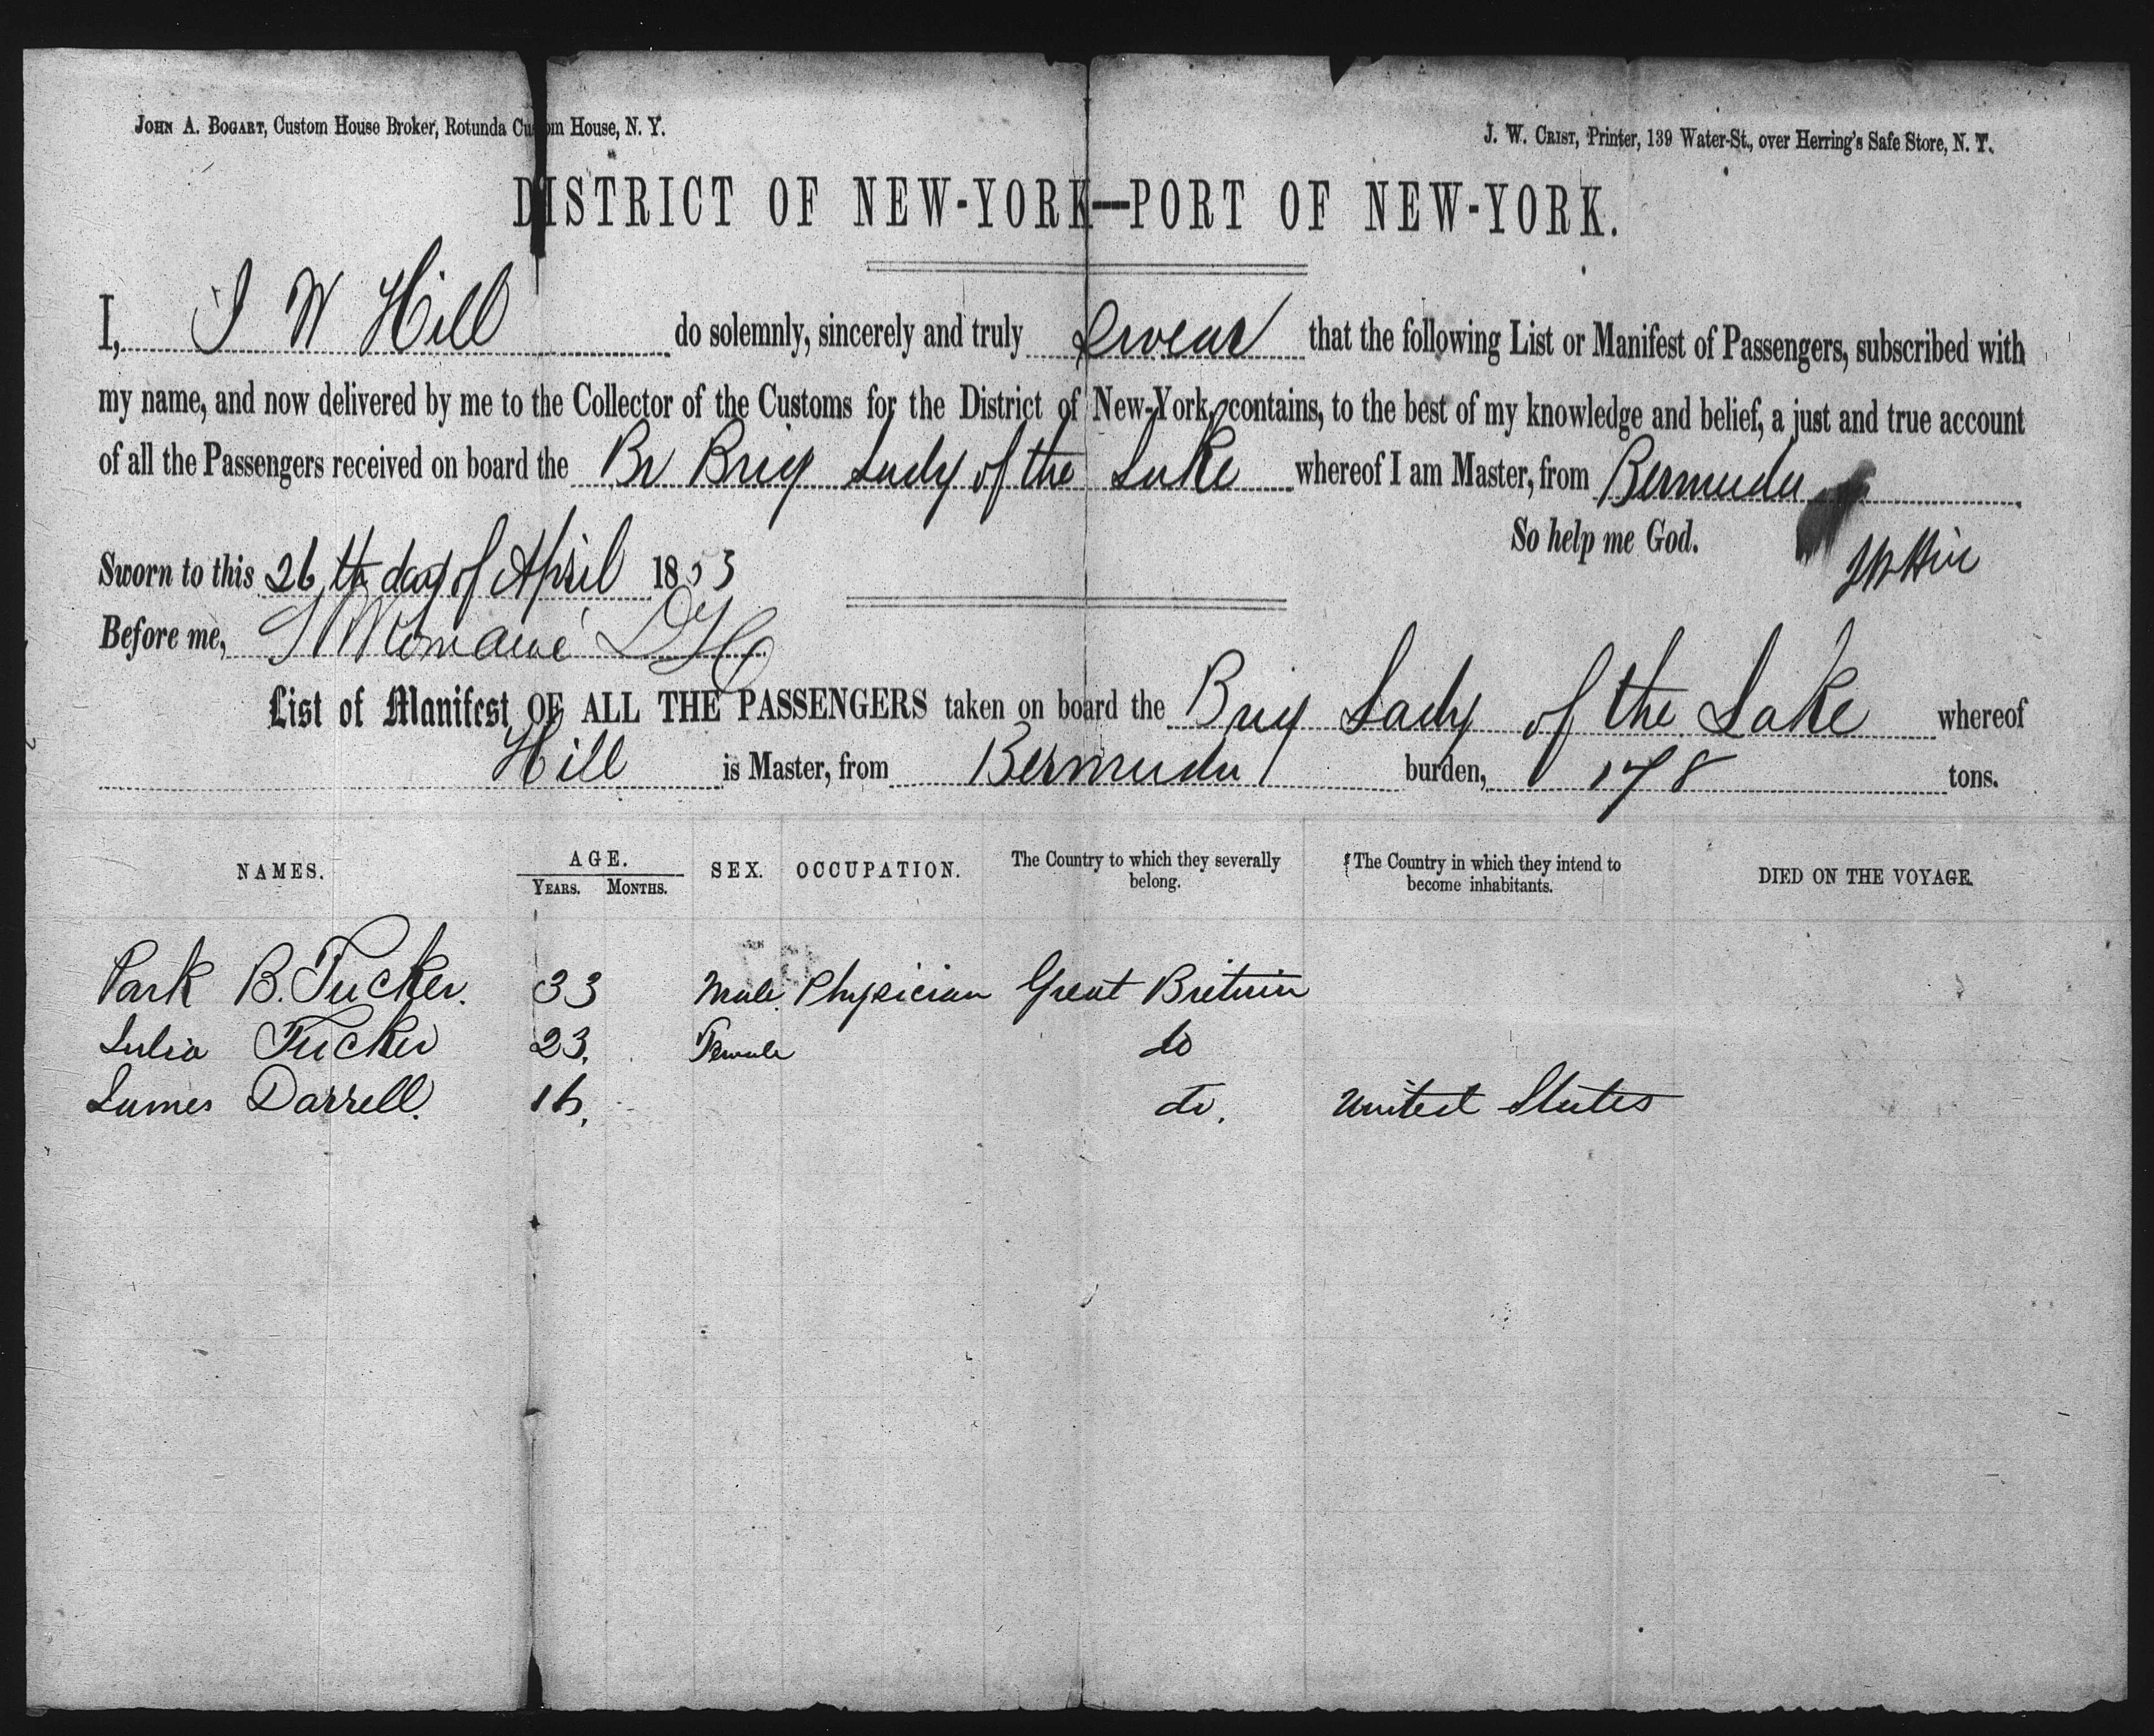 JOHN A. BOGART, Custom House Broker, Rotunda Custom House, N. Y.
J. W. CRIST, Printer, 139 Water-St., over Herring's Safe Store, N. Y.
DISTRICT OF NEW-YORK—PORT OF NEW-YORK.
I, J W Hill do solemnly, sincerely and truly swear that the following List or Manifest of Passengers, subscribed with
my name, and now delivered by me to the Collector of the Customs for the District of New-York, contains, to the best of my knowledge and belief, a just and true account
of all the Passengers received on board the Br Brig Lady of the Lake whereof I am Master, from Bermuda
So help me God.
Sworn to this 26th day of April 1853
J W Hill
Before me,
List of Manifest OF ALL THE PASSENGERS taken on board the Brig Lady of the Lake whereof
Hill is Master, from Bermuda burden, 178 tons.
NAMES. AGE. YEARS. MONTHS. SEX. OCCUPATION. The Country to which they severally belong. The Country in which they intend to become inhabitants. DIED ON THE VOYAGE.
Park B. Tucker. 33 Male Physician Great Britain
Julia Tucker 23. Female do
James Darrell. 16. do. United States